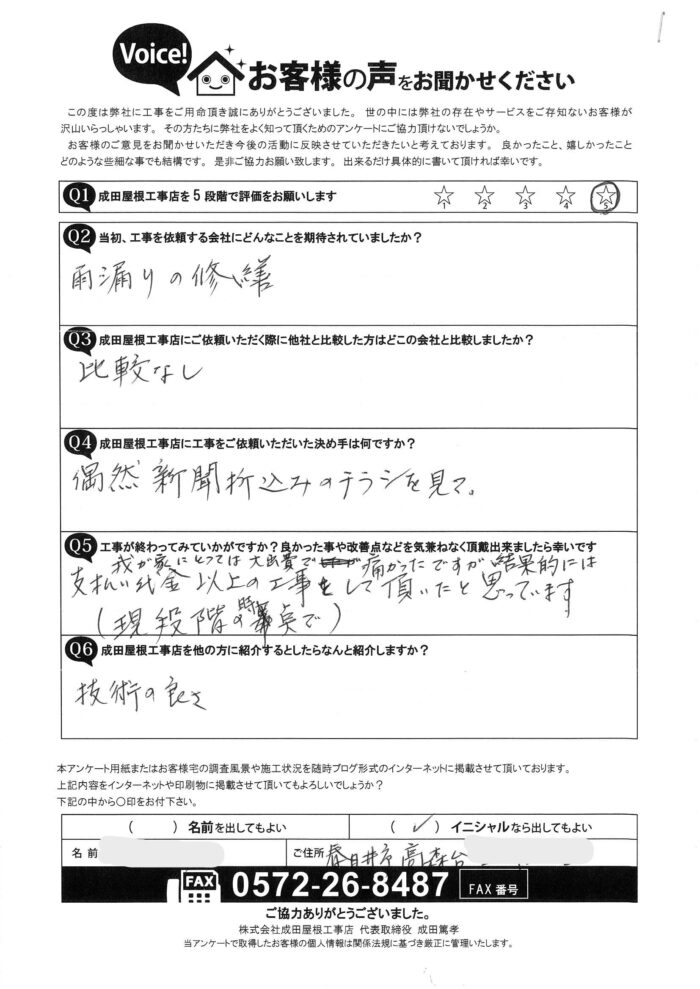 Voice!
お客様の声をお聞かせください
この度は弊社に工事をご用命頂き誠にありがとうございました。 世の中には弊社の存在やサービスをご存知ないお客様が
沢山いらっしゃいます。 その方たちに弊社をよく知って頂くためのアンケートにご協力頂けないでしょうか。
お客様のご意見をお聞かせいただき今後の活動に反映させていただきたいと考えております。 良かったこと、嬉しかったこと
どのような些細な事でも結構です。 是非ご協力お願い致します。 出来るだけ具体的に書いて頂ければ幸いです。
Q1 成田屋根工事店を5段階で評価をお願いします
☆1 ☆2 ☆3 ☆4 ☆5
Q2 当初、工事を依頼する会社にどんなことを期待されていましたか?
雨漏りの修繕
Q3 成田屋根工事店にご依頼いただく際に他社と比較した方はどこの会社と比較しましたか?
比較なし
Q4 成田屋根工事店に工事をご依頼いただいた決め手は何ですか?
偶然新聞折込みのチラシを見て。
Q5 工事が終わってみていかがですか?良かった事や改善点などを気兼ねなく頂戴出来ましたら幸いです
我が家にとっては大出費で痛かったですが結果的には
支払い代金以上の工事をして頂いたと思っています
(現段階の時点で)
Q6 成田屋根工事店を他の方に紹介するとしたらなんと紹介しますか?
技術の良さ
本アンケート用紙またはお客様宅の調査風景や施工状況を随時ブログ形式のインターネットに掲載させて頂いております。
上記内容をインターネットや印刷物に掲載させて頂いてもよろしいでしょうか?
下記の中から〇印をお付下さい。
( ) 名前を出してもよい
( ✓ ) イニシャルなら出してもよい
名 前
ご住所 春日井市高森台
FAX 0572-26-8487 FAX 番号
ご協力ありがとうございました。
株式会社成田屋根工事店 代表取締役 成田篤孝
当アンケートで取得したお客様の個人情報は関係法規に基づき厳正に管理いたします。